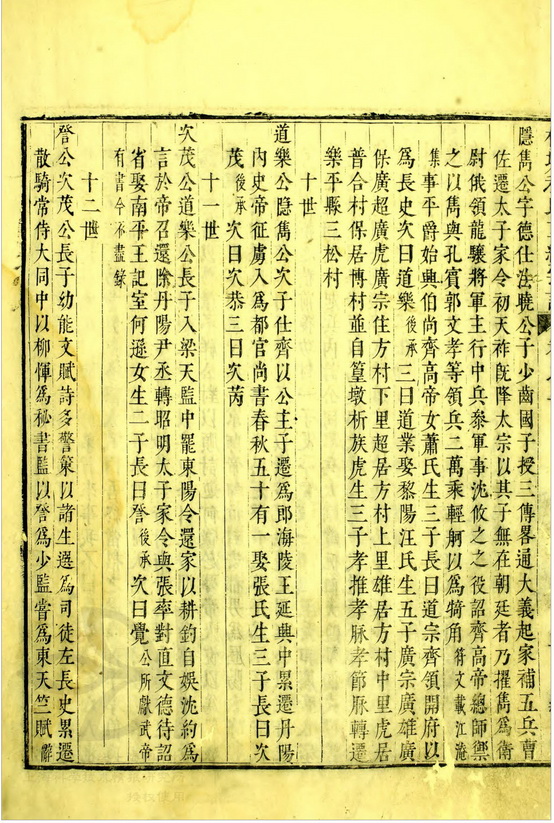 隱雋公字德仕法曉公子少齒國子授三傳畧通大義起家補五兵曹
佐遷太子家令初天祚旣降太宗以其子無在朝廷者乃擢雋爲衛
尉俄領龍驤將軍主行中兵參軍事沈攸之之役詔齊高帝總師禦
之以雋與孔賓郭文孝等領兵二萬乘輕舸以爲犄角符文載江淹
集事平爵始興伯尚齊高帝女蕭氏生三子長曰道宗齊領開府以
爲長史次曰道樂後承三曰道業娶黎陽汪氏生五子廣宗廣雄廣
保廣超廣虎廣宗住方村下里超居方村上里雄居方村中里虎居
普合村保居博村並自篁墩析族虎生三子孝推孝脉孝節脉轉遷
樂平縣三松村
十世
道樂公隱雋公次子仕齊以公主子遷爲郎海陵王延典中累遷丹陽
內史帝征虜入爲都官尚書春秋五十有一娶張氏生三子長曰次
茂後承次曰次恭三曰次芮
十一世
次茂公道樂公長子入梁天監中罷東陽令還家以耕釣自娛沈約爲
言於帝召還除丹陽尹丞轉昭明太子家令與張率對直文德待詔
省娶南平王記室何遜女生二子長曰詧後承次曰覺公所獻武帝
有書今不盡錄
十二世
詧公次茂公長子幼能文賦詩多警策以諸生選爲司徒左長史累遷
散騎常侍大同中以柳惲爲秘書監以詧爲少監嘗爲東天竺賦辭